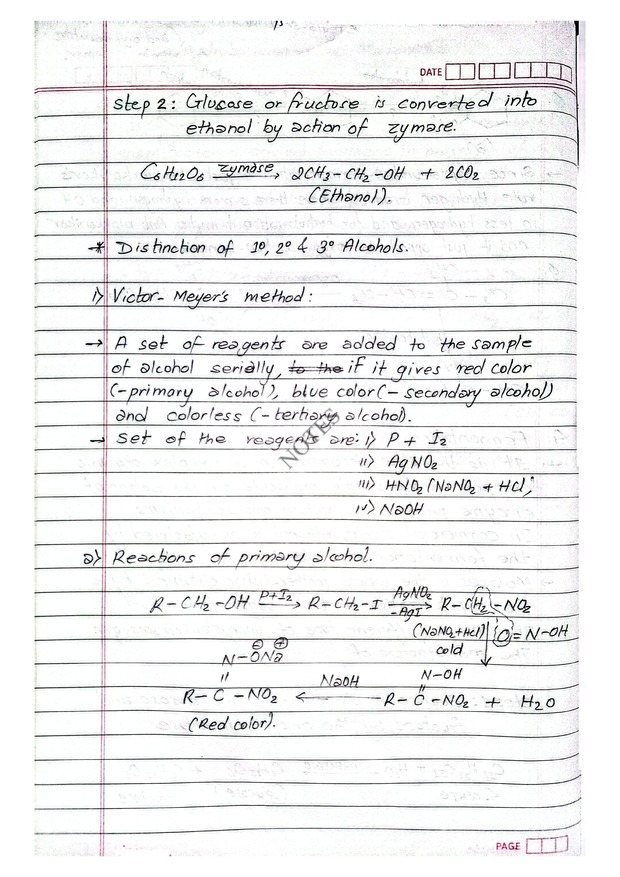 DATE
Step 2: Glucose or fructose is converted into
ethanol by action of zymase.
C6H12O6 zymase→ 2CH3-CH2-OH + 2CO2
(Ethanol).
* Distinction of 1°, 2° & 3° Alcohols.
i> Victor-Meyer's method:
→ A set of reagents are added to the sample
of alcohol serially, to the if it gives red color
(-primary alcohol), blue color (- secondary alcohol)
and colorless (- tertiary alcohol).
→ Set of the reagents are: i> P + I2
ii> AgNO2
iii> HNO2 (NaNO2 + HCl)
iv> NaOH
NOTES
a> Reactions of primary alcohol.
R-CH2-OH P+I2→ R-CH2-I AgNO2→ -AgI R-CH2-NO2
(NaNO2+HCl) O=N-OH
cold
N-O⊖Na⊕ N-OH
|| ||
R-C-NO2 ←NaOH R-C-NO2 + H2O
(Red color).
PAGE